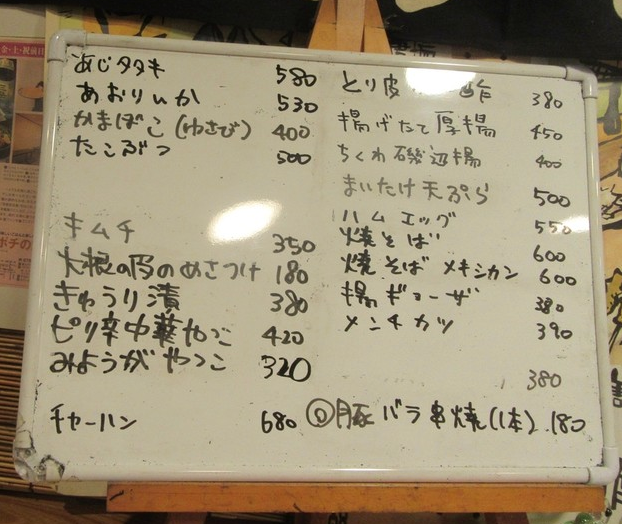 あじタタキ 580
あおりいか 530
かまぼこ(わさび) 400
たこぶつ 500
キムチ 350
大根の皮のめさつけ 180
きゅうり漬 380
ピリ辛中華やっこ 420
みょうがやっこ 320
チャーハン 680
とり皮 酢 380
揚げたて厚揚 450
ちくわ磯辺揚 400
まいたけ天ぷら 500
ハムエッグ 550
焼そば 600
焼そばメキシカン 600
揚ギョーザ 380
メンチカツ 390
380
豚バラ串焼(1本) 180